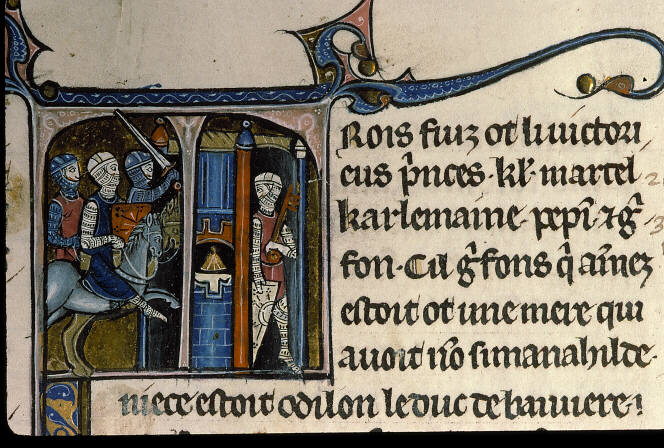 Rois fiuz ot li victori
eus p̃nces · kl̃ · martel
karlemaine · pepĩ · ⁊ g̃
fon · Cil g̃fons q̃ aĩnez
estoit ot une mere qui
avoit nõ simanahilde ·
niece estoit odilon le duc de baiviere ·